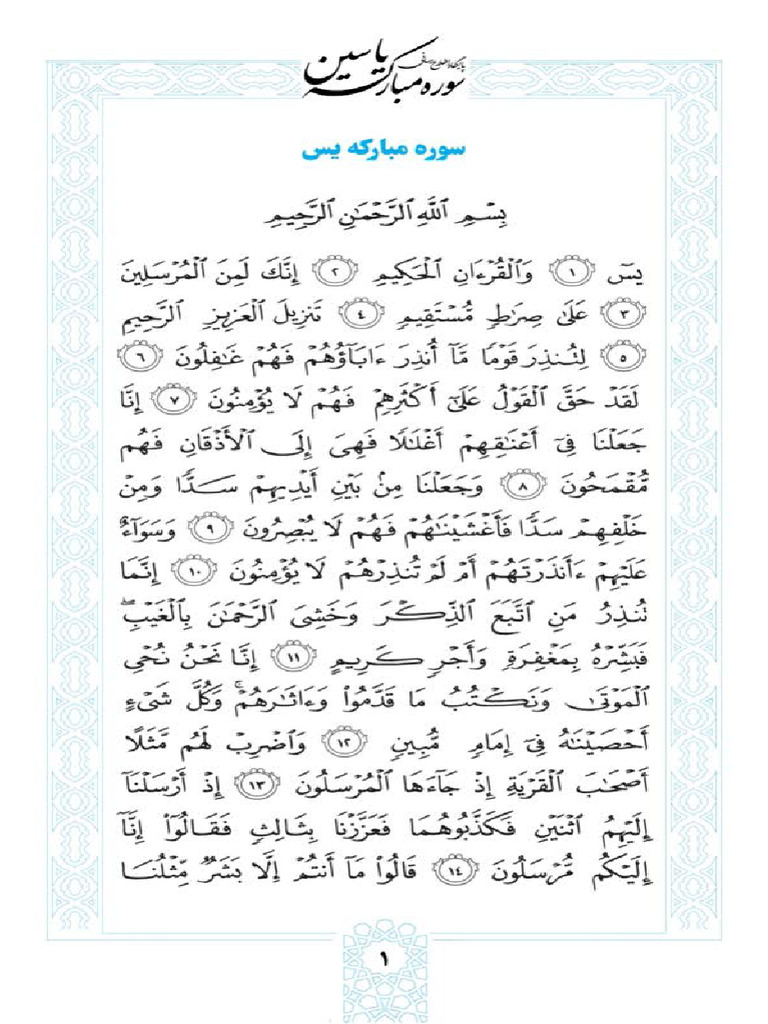 سوره مبارکه یاسین
سوره مبارکه یس
بِسْمِ اللَّهِ الرَّحْمَٰنِ الرَّحِيمِ
يسٓ ﴿١﴾ وَالْقُرْءَانِ الْحَكِيمِ ﴿٢﴾ إِنَّكَ لَمِنَ الْمُرْسَلِينَ
﴿٣﴾ عَلَىٰ صِرَٰطٍ مُّسْتَقِيمٍ ﴿٤﴾ تَنزِيلَ الْعَزِيزِ الرَّحِيمِ
﴿٥﴾ لِتُنذِرَ قَوْمًا مَّآ أُنذِرَ ءَابَآؤُهُمْ فَهُمْ غَٰفِلُونَ ﴿٦﴾
لَقَدْ حَقَّ الْقَوْلُ عَلَىٰٓ أَكْثَرِهِمْ فَهُمْ لَا يُؤْمِنُونَ ﴿٧﴾ إِنَّا
جَعَلْنَا فِىٓ أَعْنَٰقِهِمْ أَغْلَٰلًا فَهِىَ إِلَى الْأَذْقَانِ فَهُم
مُّقْمَحُونَ ﴿٨﴾ وَجَعَلْنَا مِنۢ بَيْنِ أَيْدِيهِمْ سَدًّا وَمِنْ
خَلْفِهِمْ سَدًّا فَأَغْشَيْنَٰهُمْ فَهُمْ لَا يُبْصِرُونَ ﴿٩﴾ وَسَوَآءٌ
عَلَيْهِمْ ءَأَنذَرْتَهُمْ أَمْ لَمْ تُنذِرْهُمْ لَا يُؤْمِنُونَ ﴿١٠﴾ إِنَّمَا
تُنذِرُ مَنِ اتَّبَعَ الذِّكْرَ وَخَشِىَ الرَّحْمَٰنَ بِالْغَيْبِ ۖ
فَبَشِّرْهُ بِمَغْفِرَةٍ وَأَجْرٍ كَرِيمٍ ﴿١١﴾ إِنَّا نَحْنُ نُحْىِ
الْمَوْتَىٰ وَنَكْتُبُ مَا قَدَّمُوا۟ وَءَاثَٰرَهُمْ ۚ وَكُلَّ شَىْءٍ
أَحْصَيْنَٰهُ فِىٓ إِمَامٍ مُّبِينٍ ﴿١٢﴾ وَاضْرِبْ لَهُم مَّثَلًا
أَصْحَٰبَ الْقَرْيَةِ إِذْ جَآءَهَا الْمُرْسَلُونَ ﴿١٣﴾ إِذْ أَرْسَلْنَآ
إِلَيْهِمُ اثْنَيْنِ فَكَذَّبُوهُمَا فَعَزَّزْنَا بِثَالِثٍ فَقَالُوٓا۟ إِنَّآ
إِلَيْكُم مُّرْسَلُونَ ﴿١٤﴾ قَالُوا۟ مَآ أَنتُمْ إِلَّا بَشَرٌ مِّثْلُنَا
١